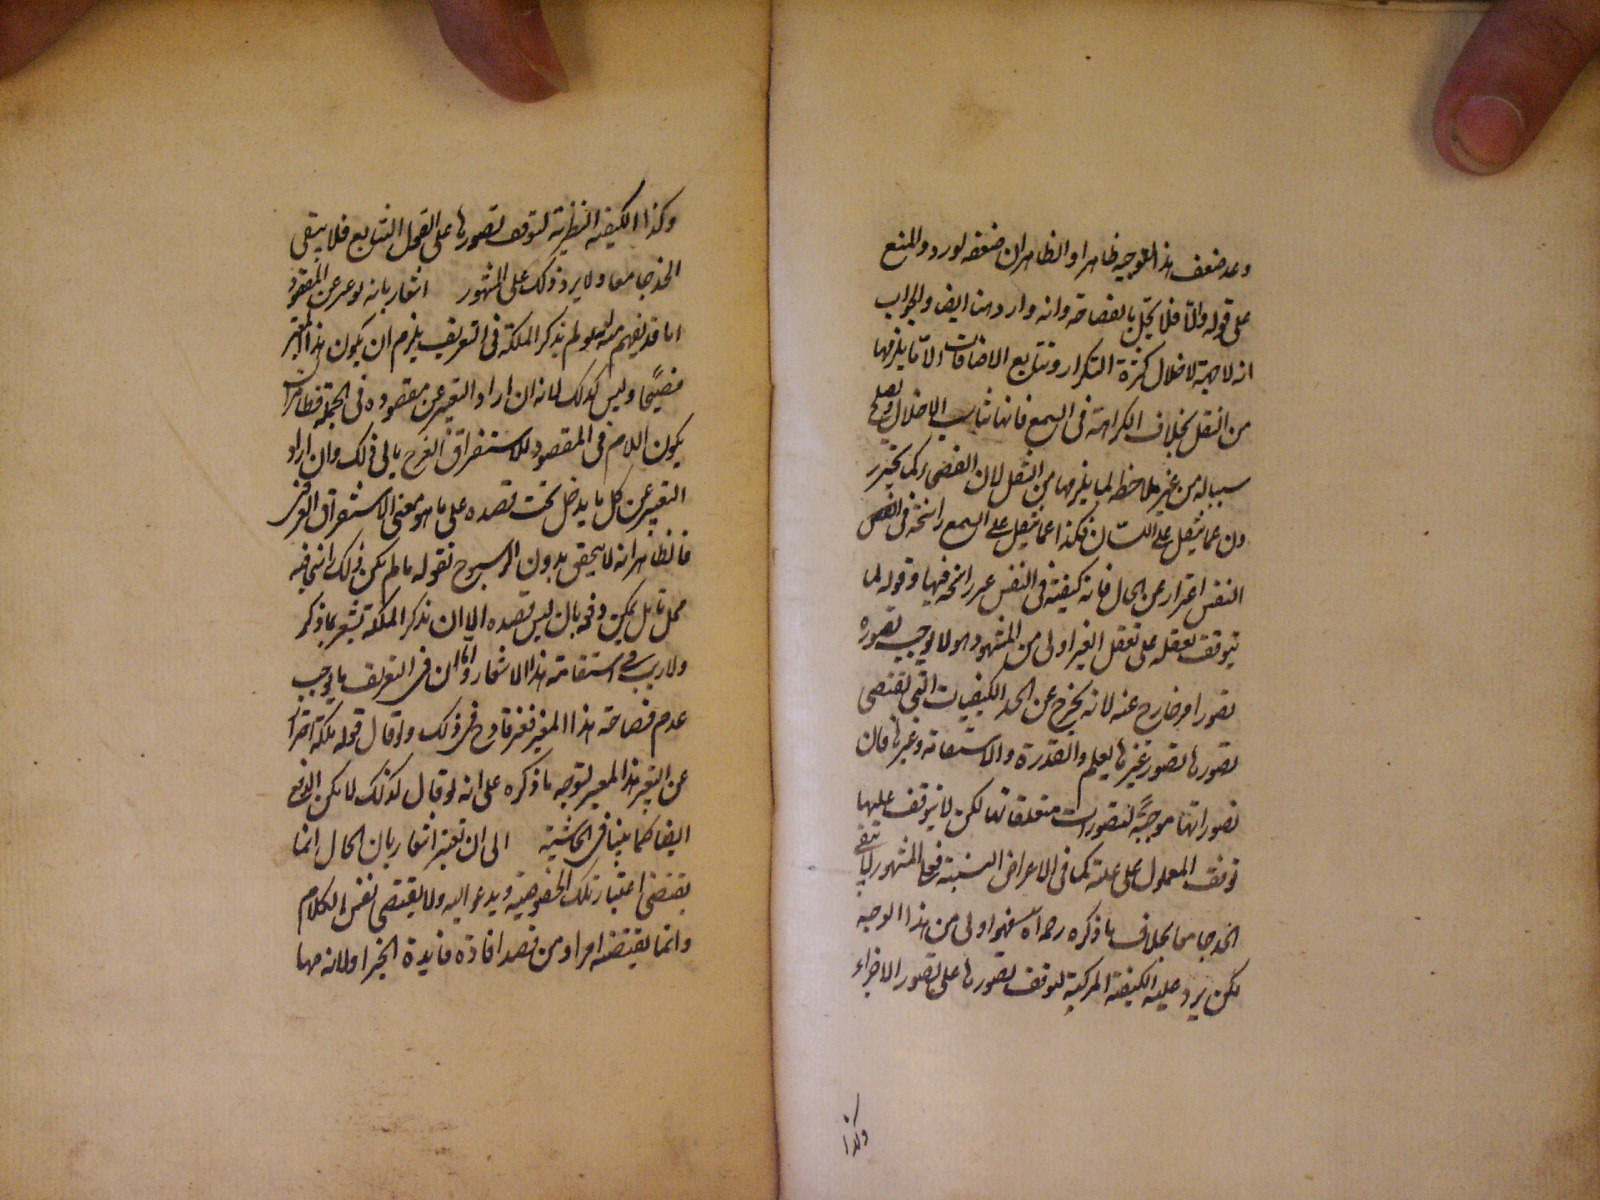 وعد ضعف هذا التوجيه ظاهرا والظاهر ان ضعفه لورود المنع
على قوله والا فلا يخل بالفصاحة وانه وارد هنا ايضا والجواب
انه لا جهة لاخلال كثرة التكرار وتتابع الاضافات الا ما يلزمها
من الثقل بخلاف الكراهة في السمع فانها تناسب الاخلال وتصلح
سبباله من غير ملاحظة لما يلزمها من الثقل لان الفصحى كما يحترز
ون عما يثقل على اللسان فكذا عما يثقل على السمع راسخة في النفس
النفس احتراز عن الحال فانه كيفية في النفس غير راسخة فيها وقوله لما
يتوقف تعقله على تعقل الغير اولى من المشهور وهو لا يوجب تصوره
تصور امر خارج عنه لانه يخرج عن الحد الكيفيات التي تقتضى
تصورها تصور غيرها كالعلم والقدرة والاستقامة وغيرها فان
تصوراتها موجبة لتصورات متعلقاتها لكن لا يتوقف عليها
توقف المعلول على علته كما في الاعراض النسبية فعلى المشهور لا يبقى
الحد جامعا بخلاف ما ذكره رحمه الله فهو اولى من هذا الوجه
لكن يرد عليه الكيفية المركبة لتوقف تصورها على تصور الاجزاء
وكذا
وكذا الكيفية النظرية لتوقف تصورها على القول الشارح فلا يبقى
الحد جامعا ولا يرد ذلك على المشهور اشعار بانه لو عبر عن المقصود
اما قد يفهم منه لو لم يذكر الملكة في التعريف يلزم ان يكون هذا المعبر
فصيحا وليس كذلك لانه ان اراد التعبير عن مقصوده في الجملة فظاهر
يكون اللام في المقصود للاستغراق العرفي يابى ذلك وان اراد
التعبير عن كل ما يدخل تحت قصده على ما هو معنى الاستغراق العرفي
فالظاهر انه لا يتحقق بدون الرسوخ فقوله ما لم يكن ذلك راسخا فيه
محل تامل يمكن دفعه بان ليس قصده الا ان ذكر الملكة يشعر بما ذكر
ولا ريب في استقامة هذا الاشعار واما ان في التعريف ما يوجب
عدم فصاحة هذا المعبر فغير قادح في ذلك ولو قال قوله ملكة احترازا
عن التعبير هذا المعبر لتوجه ما ذكره على انه لو قال كذلك لامكن الدفع
ايضا كما بينا في الحاشية الى ان تعتبر اشعار بان الحال انما
يقتضى اعتبار تلك الخصوصية ويدعو اليه ولا يقتضى نفس الكلام
وانما يقتضيه امر اخر من قصد افادة فايدة الخبر او لازمها